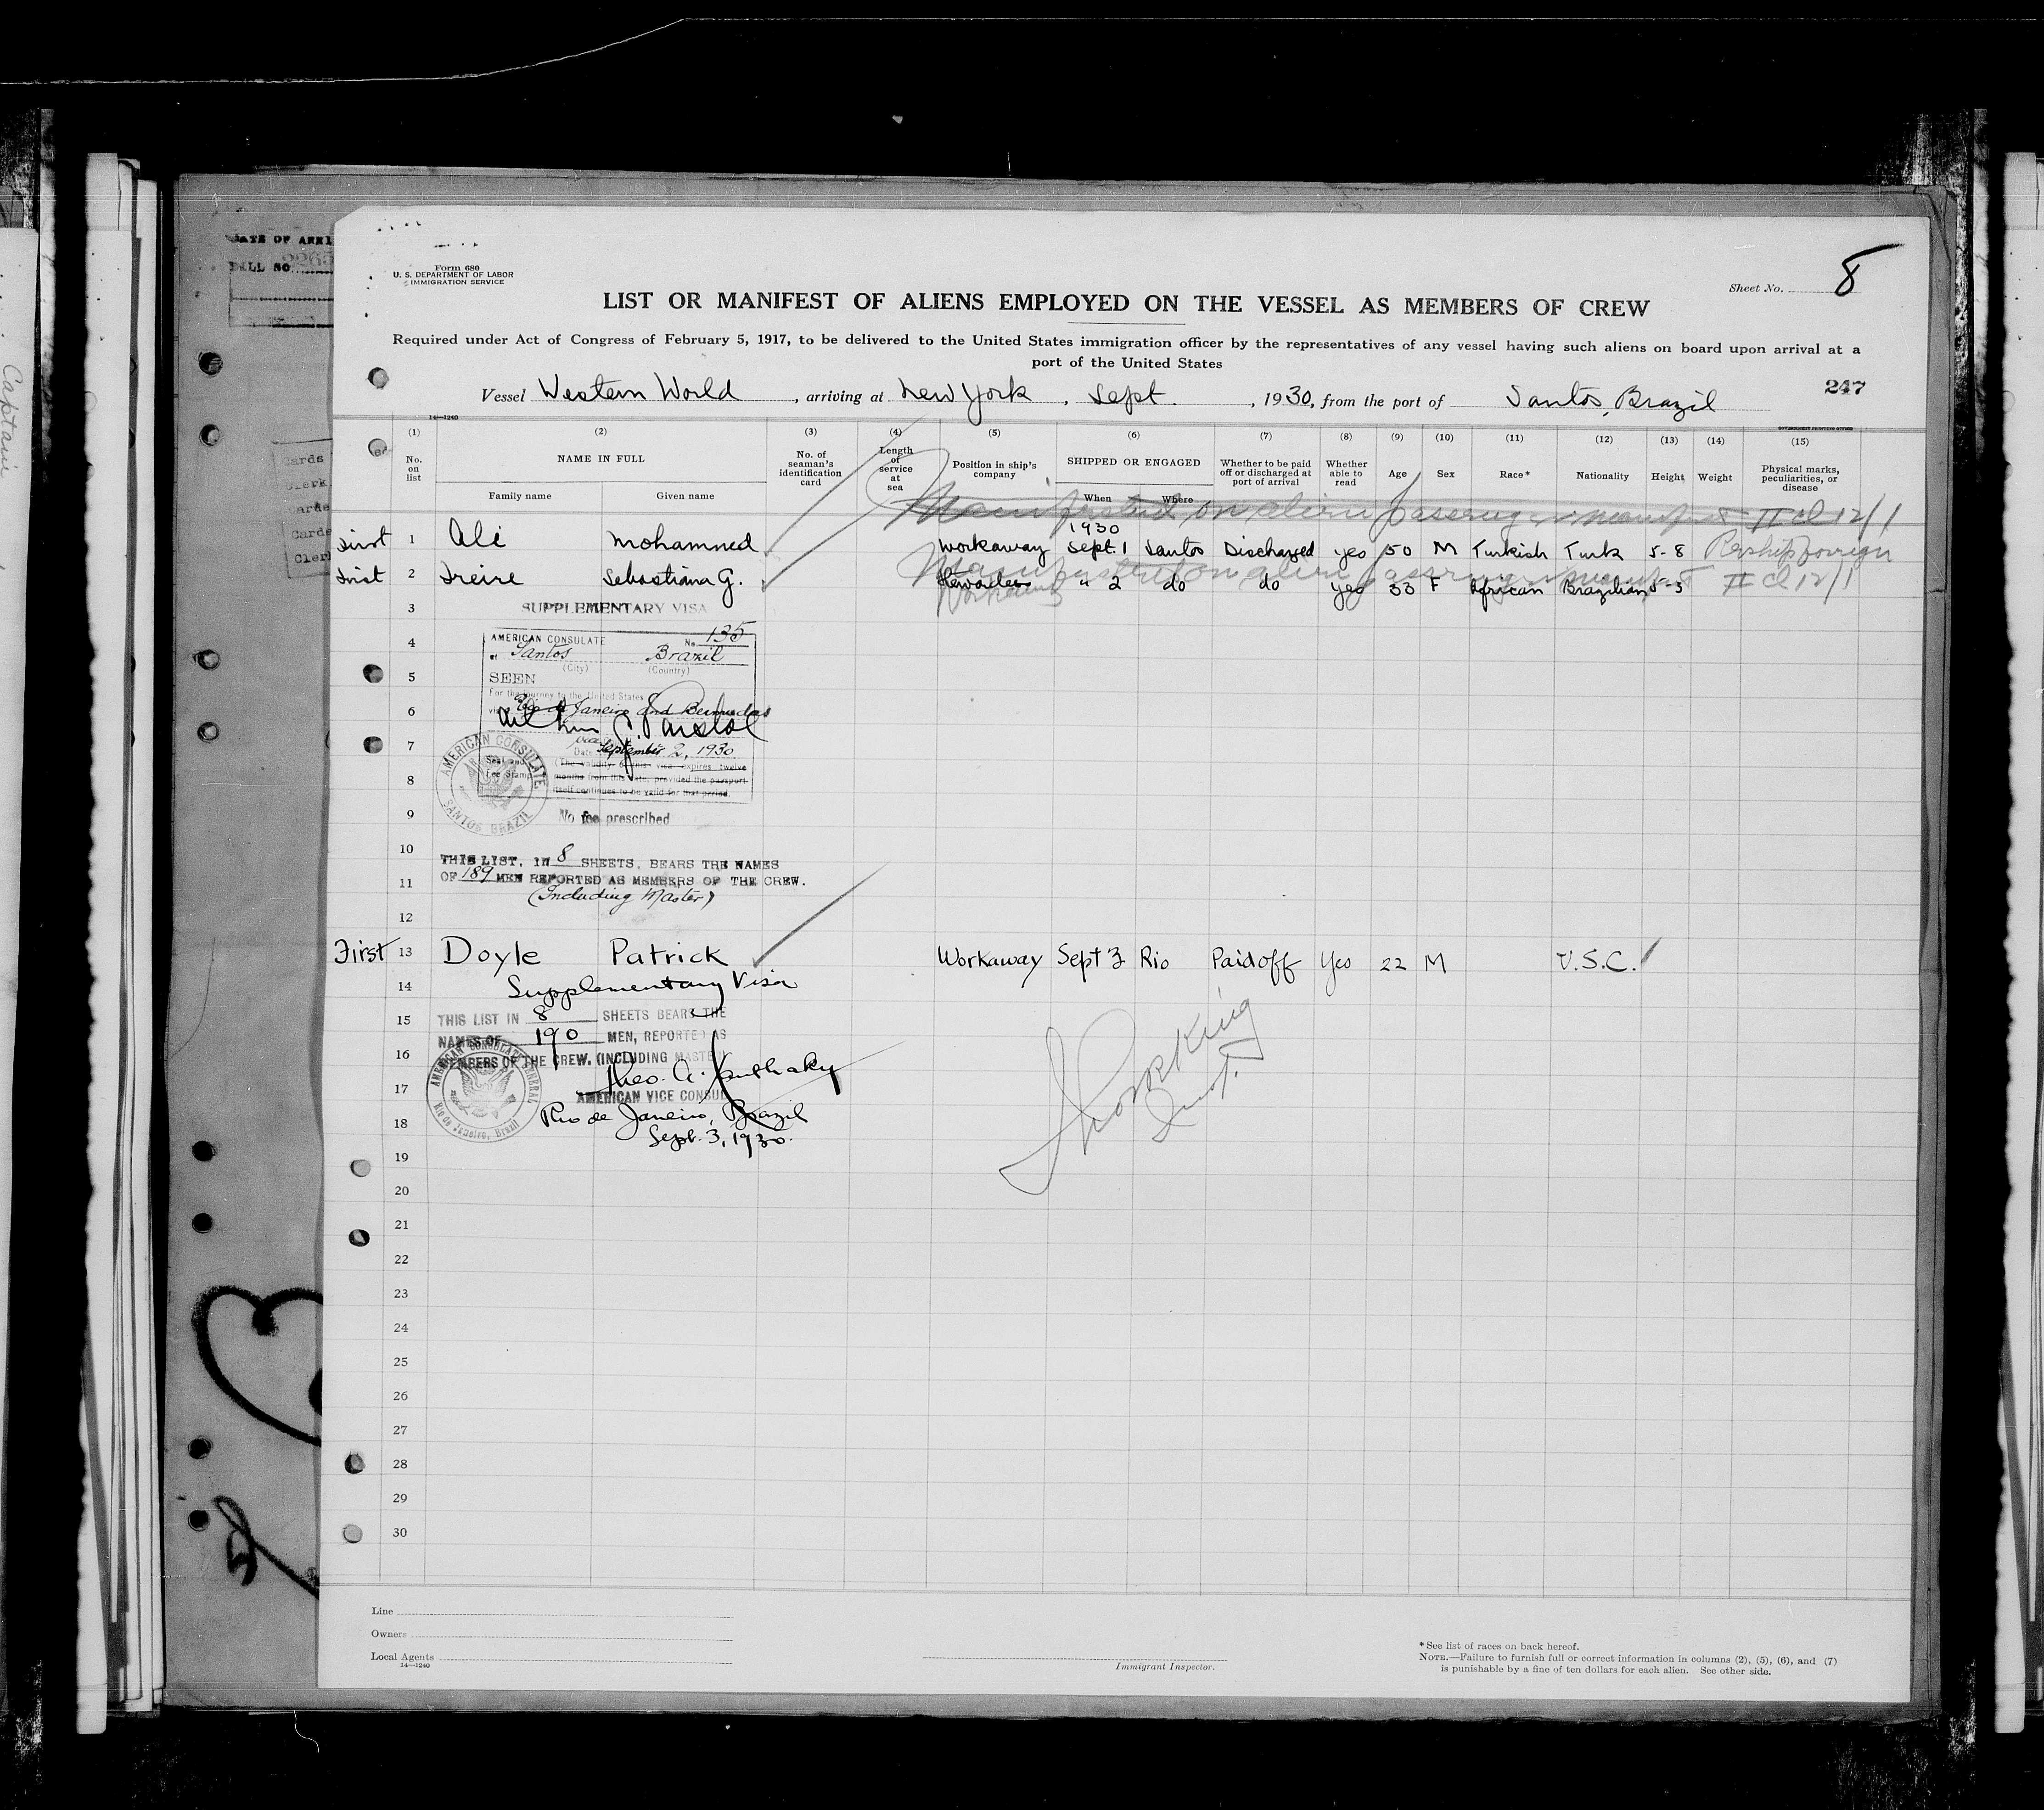 Captain
DATE OF ARRI
BILL NO 2265
Cards
Clerk
Cards
Cards
Cler
Form 680
U. S. DEPARTMENT OF LABOR
IMMIGRATION SERVICE
Sheet No. 8
LIST OR MANIFEST OF ALIENS EMPLOYED ON THE VESSEL AS MEMBERS OF CREW
Required under Act of Congress of February 5, 1917, to be delivered to the United States immigration officer by the representatives of any vessel having such aliens on board upon arrival at a
port of the United States
Vessel Western World, arriving at New York, Sept., 1930, from the port of Santos, Brazil 247
14—1240
GOVERNMENT PRINTING OFFICE
(1) (2) (3) (4) (5) (6) (7) (8) (9) (10) (11) (12) (13) (14) (15)
No. on list NAME IN FULL Family name Given name No. of seaman's identification card Length of service at sea Position in ship's company SHIPPED OR ENGAGED When Where Whether to be paid off or discharged at port of arrival Whether able to read Age Sex Race* Nationality Height Weight Physical marks, peculiarities, or disease
Manifested on alien passenger manifest II cl 12/1
1930
First 1 Ali Mohammed Workaway Sept. 1 Santos Discharged yes 50 M Turkish Turk 5-8 Reship foreign
Manifested on alien passenger manifest II cl 12/1
First 2 Freire Sebastiana G. " 2 do do yes 33 F African Brazilian 5-3
Workaway
3 SUPPLEMENTARY VISA
4 AMERICAN CONSULATE No. 135
at Santos Brazil
(City) (Country)
5 SEEN
For the journey to the United States
6 via Rio de Janeiro and Bermudas
7 Date September 2, 1930
(The validity of this visa expires twelve
8 months from this date, provided the passport
itself continues to be valid for that period.
Seal and
Fee Stamp
AMERICAN CONSULATE
SANTOS BRAZIL
9 No fee prescribed
10 THIS LIST, IN 8 SHEETS, BEARS THE NAMES
11 OF 189 MEN REPORTED AS MEMBERS OF THE CREW.
(Including Master)
12
First 13 Doyle Patrick Workaway Sept 3 Rio Paid off Yes 22 M U.S.C.
14 Supplementary Visa
15 THIS LIST IN 8 SHEETS BEARS THE
NAMES OF 190 MEN, REPORTED AS
16 MEMBERS OF THE CREW. (INCLUDING MASTER)
17 AMERICAN VICE CONSUL
AMERICAN CONSULATE GENERAL
Rio de Janeiro, Brazil
18 Rio de Janeiro, Brazil
Sept. 3, 1930.
19
20
21
22
23
24
25
26
27
28
29
30
Line
Owners
Local Agents
14—1240
Immigrant Inspector.
* See list of races on back hereof.
NOTE.—Failure to furnish full or correct information in columns (2), (5), (6), and (7)
is punishable by a fine of ten dollars for each alien. See other side.